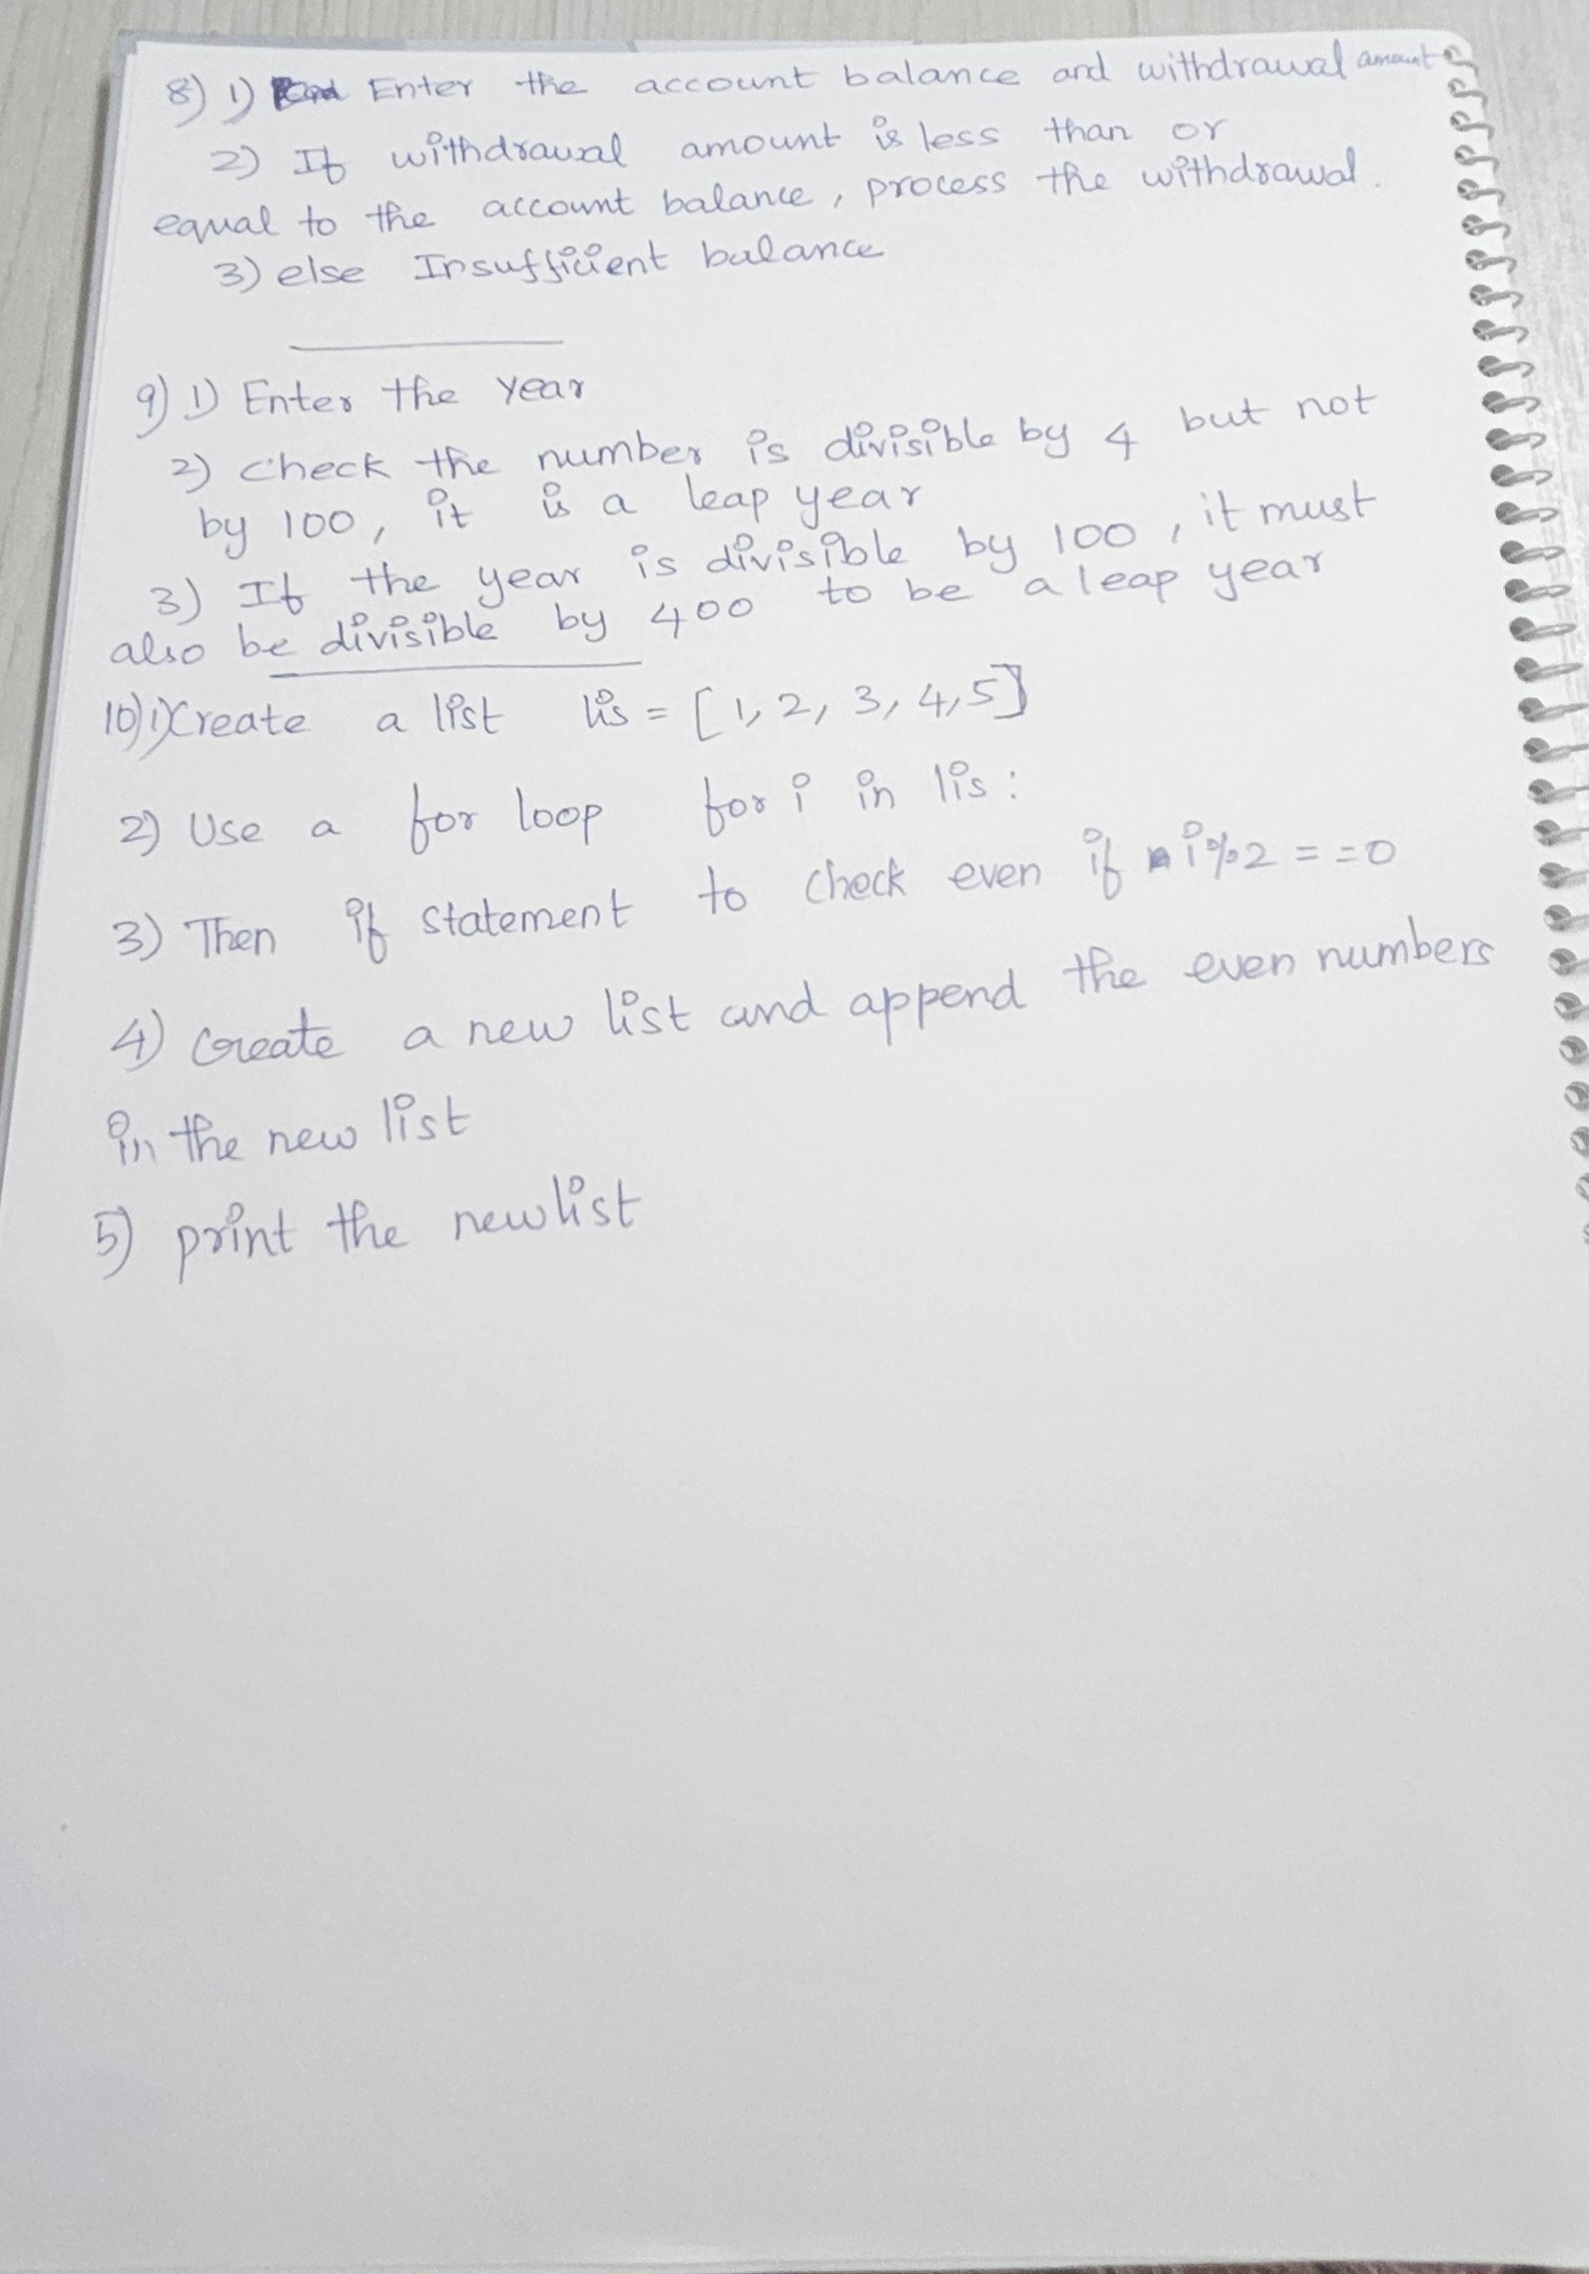 8) 1) Enter the account balance and withdrawal amount
2) If withdrawal amount is less than or
equal to the account balance, process the withdrawal.
3) else Insufficient balance
9) 1) Enter the year
2) check the number is divisible by 4 but not
by 100, it is a leap year
3) If the year is divisible by 100, it must
also be divisible by 400 to be a leap year
10) 1) Create a list lis = [1, 2, 3, 4, 5]
2) Use a for loop for i in lis:
3) Then if statement to check even if i%2 ==0
4) Create a new list and append the even numbers
in the new list
5) print the newlist